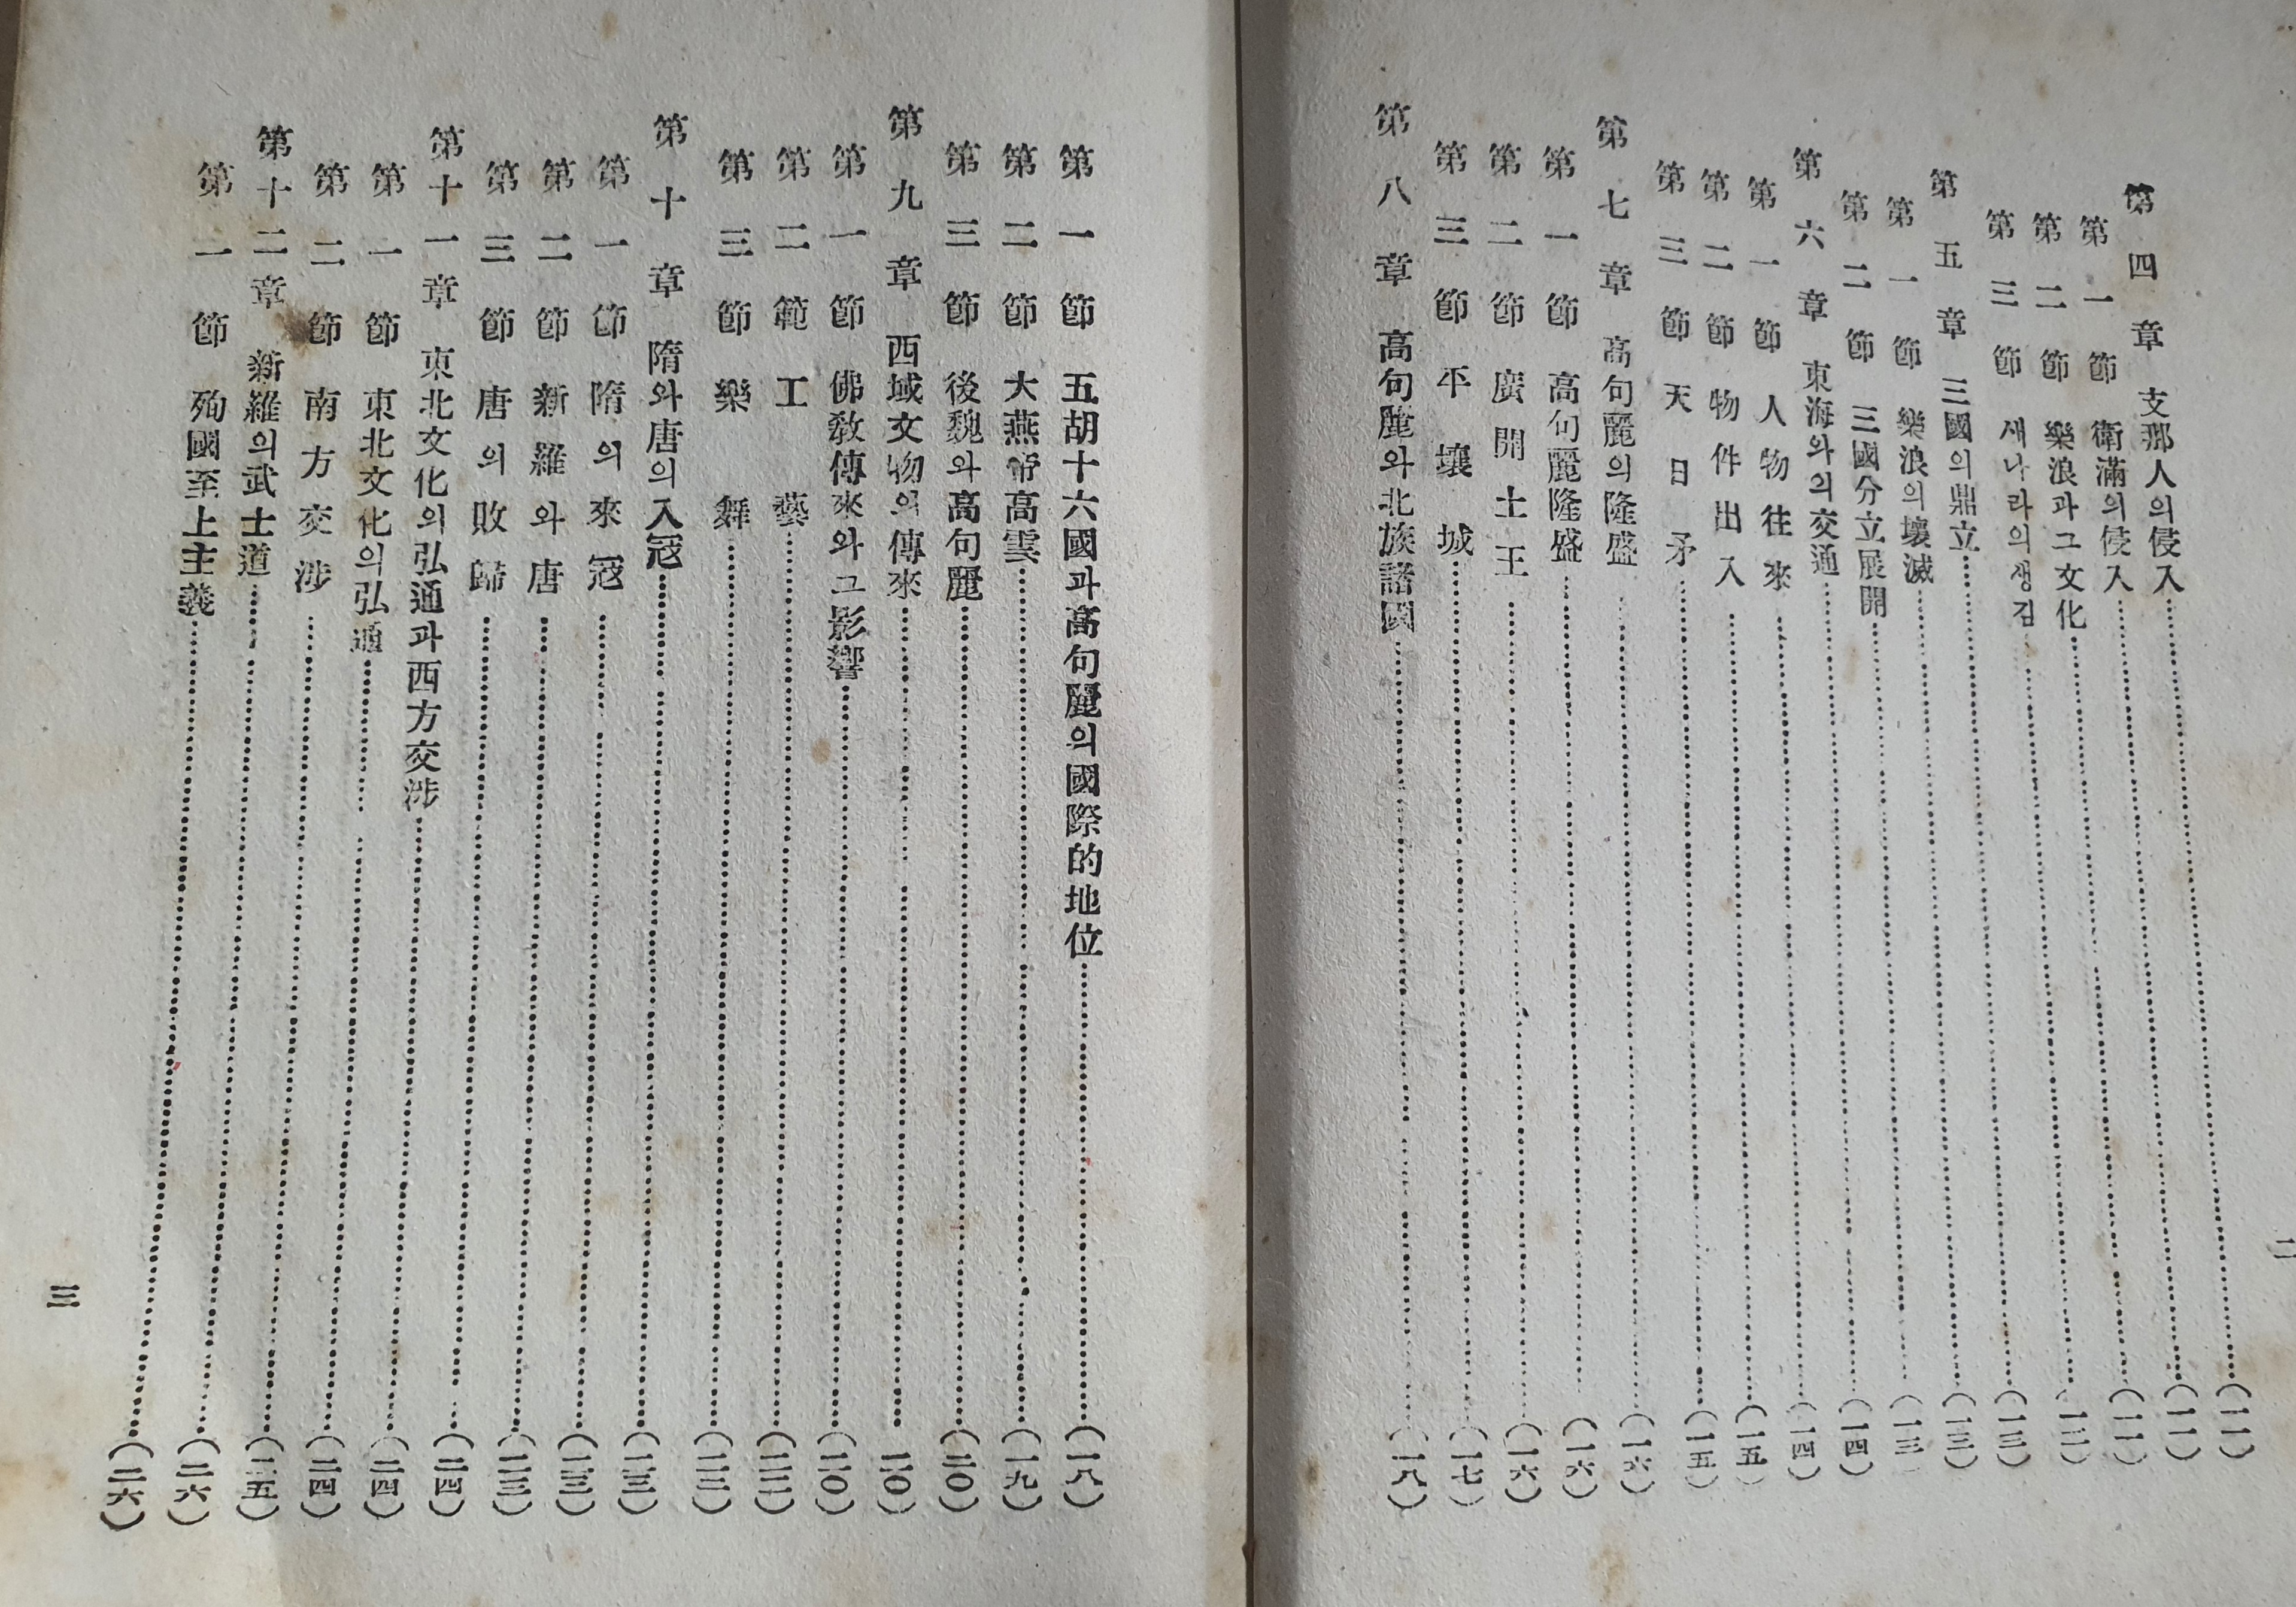 第四章 支那人의侵入……(一一)
第一節 衛滿의侵入……(一一)
第二節 樂浪과그文化……(一一)
第三節 새나라의생김……(一二)
第五章 三國의鼎立……(一三)
第一節 樂浪의壞滅……(一三)
第二節 三國分立展開……(一三)
第六章 東海와의交通……(一四)
第一節 人物往來……(一四)
第二節 物件出入……(一五)
第三節 天日矛……(一五)
第七章 高句麗의隆盛……(一六)
第一節 高句麗隆盛……(一六)
第二節 廣開土王……(一六)
第三節 平壤城……(一七)
第八章 高句麗와北族諸國……(一八)
二
第一節 五胡十六國과高句麗의國際的地位……(一八)
第二節 大燕帝高雲……(一九)
第三節 後魏와高句麗……(二〇)
第九章 西域文物의傳來……(二〇)
第一節 佛敎傳來와그影響……(二〇)
第二範 工藝……(二二)
第三節 樂舞……(二二)
第十章 隋와唐의入冦……(二三)
第一節 隋의來冦……(二三)
第二節 新羅와唐……(二三)
第三節 唐의敗歸……(二四)
第十一章 東北文化의弘通과西方交涉……(二四)
第一節 東北文化의弘通……(二四)
第二節 南方交涉……(二五)
第十二章 新羅의武士道……(二六)
第一節 殉國至上主義……(二六)
三